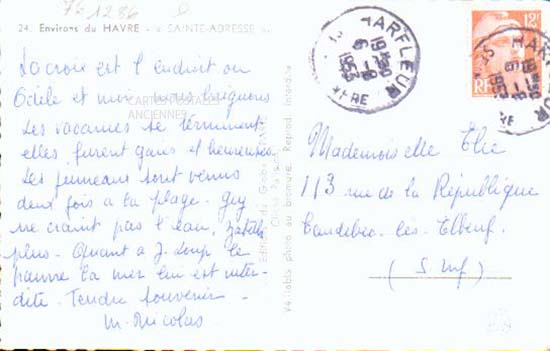 76 1286
24. Environs du HAVRE - « SAINTE-ADRESSE »
La croix est l'endroit ou
Odile et moi nous baignons
Les vacances se terminent
elles furent gaies et heureuses.
Les jumeaux sont venus
deux fois à la plage - Guy
ne craint pas l'eau,
plus - Quant à J. Loup le
pauvre la mer lui est inter-
dite - Tendre souvenir -
M. Nicolas
CARTES POSTALES
ANCIENNES
Véritable photo au bromure. Reprod. Interdite
HARFLEUR
1950
6 - 8
1953
12F
RF
HARFLEUR
1950
6 - 8
195
Mademoiselle Elie
113 rue de la République
Caudebec-lès-Elbeuf
(S. Inf)